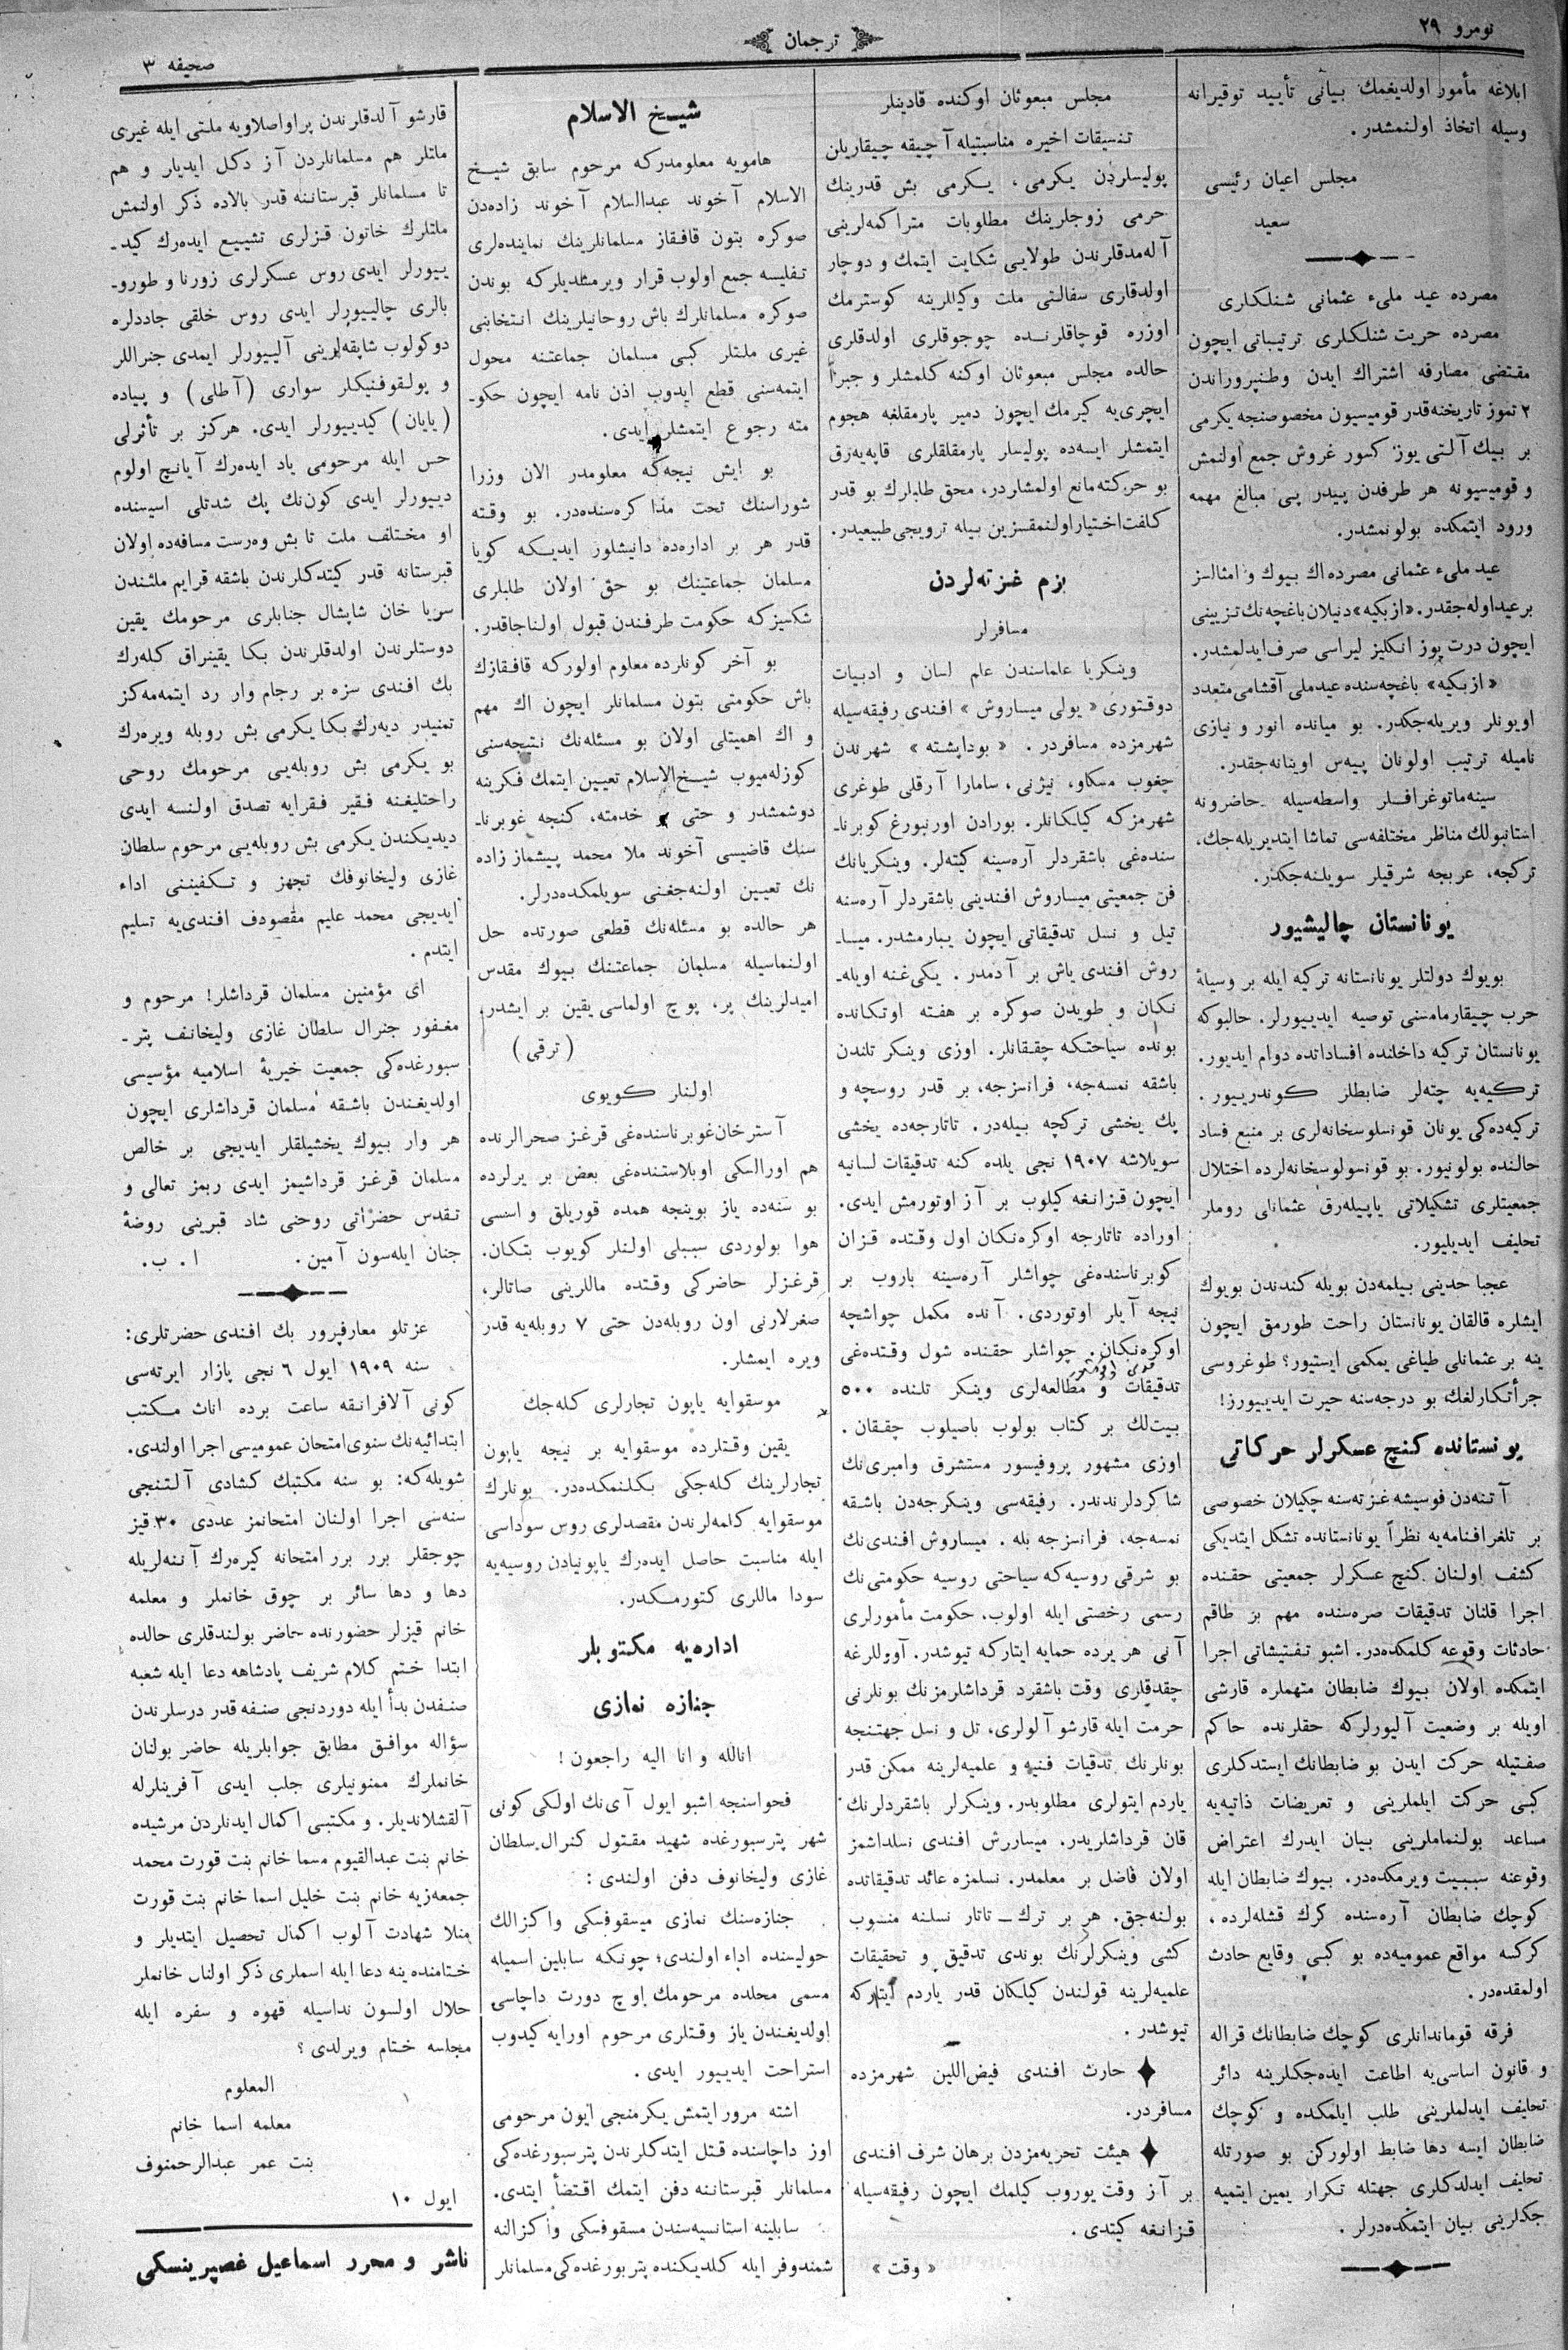 نومرو ٢٩
ترجمان
صحيفه ٣
ابلاغه مأمور اولديغمك بيانى تأييد توقيرانه
وسيله اتخاذ اولنمشدر.
مجلس اعيان رئيسى
سعيد
مصرده عيد ملىء عثمانى شنلكلرى
مصرده حريت شنلكلرى ترتيباتى ايچون
مقتضى مصارفه اشتراك ايدن وطنپروراندن
٢ تموز تاريخنه قدر قوميسيون مخصوصنجه يكرمى
بر بيك آلتى يوز كسور غروش جمع اولنمش
و قوميسيونه هر طرفدن پيدر پى مبالغ مهمه
ورود ايتمكده بولونمشدر.
عيد ملىء عثمانى مصرده اك بيوك و امثالسز
بر عيد اوله جقدر. «ازبكيه» دنيلان باغچه نك تزيينى
ايچون درت يوز انكليز ليراسى صرف ايدلمشدر.
«ازبكيه» باغچه سنده عيد ملى آقشامى متعدد
اويونلر ويريله جكدر. بو ميانده انور و نيازى
ناميله ترتيب اولونان پيه س اوينانه جقدر.
سينه ماتوغرافلر واسطه سيله حاضرونه
استانبولك مناظر مختلفه سى تماشا ايتديريله جك،
تركجه، عربجه شرقيلر سويلنه جكدر.
يونانستان چاليشيور
بويوك دولتلر يونانستانه تركيه ايله بر وسيلهٔ
حرب چيقارمامسنى توصيه ايدييورلر. حالبوكه
يونانستان تركيه داخلنده افساداتده دوام ايديور.
تركيه يه چته لر ضابطلر كوندرييور.
تركيه ده كى يونان قونسلوسخانه لرى بر منبع فساد
حالنده بولونيور. بو قونسولوسخانه لرده اختلال
جمعيتلرى تشكيلاتى ياپيله رق عثمانلى روملر
تحليف ايديليور.
عجبا حدينى بيلمه دن بويله كندندن بويوك
ايشلره قالقان يونانستان راحت طورمق ايچون
ينه بر عثمانلى طياغى يمكمى ايستيور؟ طوغروسى
جرأتكارلغك بو درجه سنه حيرت ايدييورز!
يونستانده كنج عسكرلر حركاتى
آتنه دن فوسيشه غزته سنه چكيلان خصوصى
بر تلغرافنامه يه نظراً يونانستانده تشكل ايتديكى
كشف اولنان كنج عسكرلر جمعيتى حقنده
اجرا قلنان تدقيقات صره سنده مهم بر طاقم
حادثات وقوعه كلمكده در. اشبو تفتيشاتى اجرا
ايتمكده اولان بيوك ضابطان متهملره قارشى
اويله بر وضعيت آليورلركه حقلرنده حاكم
صفتيله حركت ايدن بو ضابطانك ايستدكلرى
كبى حركت ايلملرينى و تعريضات ذاتيه يه
مساعد بولنماملرينى بيان ايدرك اعتراض
وقوعنه سببيت ويرمكده در. بيوك ضابطان ايله
كوچك ضابطان آره سنده كرك قشله لرده،
كركسه مواقع عموميه ده بو كبى وقايع حادث
اولمقده در.
فرقه قوماندانلرى كوچك ضابطانك قراله
و قانون اساسى يه اطاعت ايده جكلرينه دائر
تحليف ايدلملرينى طلب ايلمكده و كوچك
ضابطان ايسه دها ضابط اولوركن بو صورتله
تحليف ايدلدكلرى جهتله تكرار يمين ايتميه
جكلرينى بيان ايتمكده درلر.
مجلس مبعوثان اوكنده قادينلر
تنسيقات اخيره مناسبتيله آچيقه چيقاريلن
پوليسلردن يكرمى، يكرمى بش قدرينك
حرمى زوجلرينك مطلوبات متراكمه لرينى
آله مدقلرندن طولايى شكايت ايتمك و دوچار
اولدقلرى سفالتى ملت وكيللرينه كوسترمك
اوزره قوچاقلرنده چوجوقلرى اولدقلرى
حالده مجلس مبعوثان اوكنه كلمشلر و جبراً
ايچرى يه كيرمك ايچون دمير پارمقلغه هجوم
ايتمشلر ايسه ده پوليسلر پارمقلقلرى قاپه يه رق
بو حركته مانع اولمشلردر، محق طلبلرك بو قدر
كلفت اختيار اولنمقسزين بيله ترويجى طبيعيدر.
بزم غزته لردن
مسافرلر
وينكريا علماسندن علم لسان و ادبيات
دوقتورى «يولى ميساروش» افندى رفيقه سيله
شهرمزده مسافردر. «بوداپشته» شهرندن
چغوب مسكاو، نيژنى، سامارا آرقلى طوغرى
شهرمزكه كيلكانلر. بورادن اورنبورغ كوبرناـ
سنده غى باشقردلر آره سينه كيته لر. وينكريانك
فن جمعيتى ميساروش افندينى باشقردلر آره سنه
تيل و نسل تدقيقاتى ايچون يبارمشدر. ميساـ
روش افندى ياش بر آدمدر. يكى غنه اويله ـ
نكان و طويدن صوكره بر هفته اوتكانده
بونده سياحتكه چققانلر. اوزى وينكر تلندن
باشقه نمسه جه، فرانسزجه، بر قدر روسچه و
پك يخشى تركچه بيله در. تاتارجه ده يخشى
سويلاشه ١٩٠٧ نجى يلده كنه تدقيقات لسانيه
ايچون قزانغه كيلوب بر آز اوتورمش ايدى.
اوراده تاتارجه اوكره نكان اول وقتده قزان
كوبرناسنده غى چواشلر آره سينه باروب بر
نيجه آيلر اوتوردى. آنده مكمل چواشچه
اوكره نكان. چواشلر حقنده شول وقتده غى
تدقيقات و مطالعه لرى وينكر تلنده ٥٠٠
بيت لك بر كتاب بولوب باصيلوب چققان.
اوزى مشهور پروفيسور مستشرق وامبرى نك
شاكردلرندندر. رفيقه سى وينكرجه دن باشقه
نمسه جه، فرانسزجه بله. ميساروش افندى نك
بو شرقى روسيه كه سياحتى روسيه حكومتى نك
رسمى رخصتى ايله اولوب، حكومت مأمورلرى
آنى هر يرده حمايه ايتاركه تيوشدر. آووللرغه
چقدقلرى وقت باشقرد قرداشلرمزنك بونلرنى
حرمت ايله قارشو آلولرى، تل و نسل جهتنجه
بونلرنك تدقيات فنيه و علميه لرينه ممكن قدر
ياردم ايتولرى مطلوبدر. وينكرلر باشقردلرنك
قان قرداشلريدر. ميساررش افندى نسلداشمز
اولان فاضل بر معلمدر. نسلمزه عائد تدقيقاتده
بولنه جق. هر بر ترك ــ تاتار نسلنه منسوب
كشى وينكرلرنك بوندى تدقيق و تحقيقات
علميه لرينه قولندن كيلكان قدر ياردم ايتاركه
تيوشدر.
حارث افندى فيض اللين شهرمزده
مسافردر.
هيئت تحريريه مزدن برهان شرف افندى
بر آز وقت يوروب كيلمك ايچون رفيقه سيله
قزانغه كيتدى.
«وقت»
شيخ الاسلام
هامويه معلومدركه مرحوم سابق شيخ
الاسلام آخوند عبدالسلام آخوند زاده دن
صوكره بتون قافقاز مسلمانلرينك نماينده لرى
تفليسه جمع اولوب قرار ويرمشديلركه بوندن
صوكره مسلمانلرك باش روحانيلرينك انتخابنى
غيرى ملتلر كبى مسلمان جماعتنه محول
ايتمه سنى قطع ايدوب اذن نامه ايچون حكوـ
مته رجوع ايتمشلر ايدى.
بو ايش نيجه كه معلومدر الان وزرا
شوراسنك تحت مذاكره سنده در. بو وقته
قدر هر بر اداره ده دانيشلور ايديكه كويا
مسلمان جماعتينك بو حق اولان طلبلرى
شكسيزكه حكومت طرفندن قبول اولناجاقدر.
بو آخر كونلرده معلوم اولوركه قافقازك
باش حكومتى بتون مسلمانلر ايچون اك مهم
و اك اهميتلى اولان بو مسئله نك نتيجه سنى
كوزله ميوب شيخ الاسلام تعيين ايتمك فكرينه
دوشمشدر و حتى خدمته، كنجه غوبرناـ
سنك قاضيسى آخوند ملا محمد پيشماز زاده
نك تعيين اولنه جغنى سويلمكده درلر.
هر حالده بو مسئله نك قطعى صورتده حل
اولنماسيله مسلمان جماعتنك بيوك مقدس
اميدلرينك پر، پوچ اولماسى يقين بر ايشدر،
(ترقى)
اولنلر كويوى
آسترخان غوبرناسنده غى قرغز صحرالرنده
هم اورالسكى اوبلاستنده غى بعض بر يرلرده
بو سنه ده ياز بوينجه همده قوريلق و اسسى
هوا بولوردى سببلى اولنلر كويوب بتكان.
قرغزلر حاضركى وقتده ماللرينى صاتالر،
صغرلارنى اون روبله دن حتى ٧ روبله يه قدر
ويره ايمشلر.
موسقوايه ياپون تجارلرى كله جك
يقين وقتلرده موسقوايه بر نيجه ياپون
تجارلرينك كله جكى بكلنمكده در. بونلرك
موسقوايه كلمه لرندن مقصدلرى روس سوداسى
ايله مناسبت حاصل ايده رك ياپونيادن روسيه يه
سودا ماللرى كتورمكدر.
اداره يه مكتوبلر
جنازه نمازى
انالله و انا اليه راجعون!
فحواسنجه اشبو ايول آى نك اولكى كونى
شهر پترسبورغده شهيد مقتول كنرال سلطان
غازى وليخانوف دفن اولندى:
جنازه سنك نمازى ميسقوفسكى واكزالك
حوليسنده اداء اولندى؛ چونكه سابلين اسميله
مسمى محلده مرحومك اوچ دورت داچاسى
اولديغندن ياز وقتلرى مرحوم اورايه كيدوب
استراحت ايدييور ايدى.
اشته مرور ايتمش يكرمنجى ايون مرحومى
اوز داچاسنده قتل ايتدكلرندن پترسبورغده كى
مسلمانلر قبرستاننه دفن ايتمك اقتضأ ايتدى.
سابلينه استانسيه سندن مسقوفسكى واكزالنه
شمندوفر ايله كلديكنده پتربورغده كى مسلمانلر
قارشو آلدقلرندن پراواصلاويه ملتى ايله غيرى
ملتلر هم مسلمانلردن آز دكل ايديلر و هم
تا مسلمانلر قبرستاننه قدر بالاده ذكر اولنمش
ملتلرك خاتون قزلرى تشييع ايده رك كيدـ
ييورلر ايدى روس عسكرلرى زورنا و طوروـ
بالرى چالييورلر ايدى روس خلقى جاددلره
دوكولوب شاپقه لرينى آلييورلر ايمدى جنراللر
و پولقوفنيكلر سوارى (آطلى) و پياده
(يايان) كيدييورلر ايدى. هركز بر تأثرلى
حس ايله مرحومى ياد ايده رك آيانچ اولوم
دييورلر ايدى كون نك پك شدتلى اسيسنده
او مختلف ملت تا بش وه رست مسافه ده اولان
قبرستانه قدر كيتدكلرندن باشقه قرايم ملتندن
سريا خان شاپشال جنابلرى مرحومك يقين
دوستلرندن اولدقلرندن بكا يقينراق كله رك
بك افندى سزه بر رجام وار رد ايتمه مه كز
تمنيدر ديه رك بكا يكرمى بش روبله ويره رك
بو يكرمى بش روبله يى مرحومك روحى
راحتليغنه فقير فقرايه تصدق اولنسه ايدى
ديديكندن يكرمى بش روبله يى مرحوم سلطان
غازى وليخانوفك تجهز و تكفيننى اداء
ايديجى محمد عليم مقصودف افندى يه تسليم
ايتدم.
اى مؤمنين مسلمان قرداشلر! مرحوم و
مغفور جنرال سلطان غازى وليخانف پترـ
سبورغده كى جمعيت خيريهٔ اسلاميه مؤسيسى
اولديغندن باشقه مسلمان قرداشلرى ايچون
هر وار بيوك يخشيلقلر ايديجى بر خالص
مسلمان قرغز قرداشيمز ايدى ربمز تعالى و
تقدس حضراتى روحنى شاد قبرينى روضهٔ
جنان ايله سون آمين. ا. ب.
عزتلو معارفپرور بك افندى حضرتلرى:
سنه ١٩٠٩ ايول ٦ نجى پازار ايرته سى
كونى آلافرانقه ساعت برده اناث مكتب
ابتدائيه نك سنوى امتحان عموميسى اجرا اولندى.
شويله كه: بو سنه مكتبك كشادى آلتنجى
سنه سى اجرا اولنان امتحانمز عددى ٣٠ قيز
چوجقلر برر برر امتحانه كيره رك آننه لريله
دها و دها سائر بر چوق خانملر و معلمه
خانم قيزلر حضورنده حاضر بولندقلرى حالده
ابتدا ختم كلام شريف پادشاهه دعا ايله شعبه
صنفدن بدأ ايله دوردنجى صنفه قدر درسلرندن
سؤاله موافق مطابق جوابلريله حاضر بولنان
خانملرك ممنونيلرى جلب ايدى آفرينلرله
آلقشلانديلر. و مكتبى اكمال ايدنلردن مرشيده
خانم بنت عبدالقيوم مسما خانم بنت قورت محمد
جمعه زيه خانم بنت خليل اسما خانم بنت قورت
منلا شهادت آلوب اكمال تحصيل ايتديلر و
ختامنده ينه دعا ايله اسملرى ذكر اولنال خانملر
حلال اولسون نداسيله قهوه و سفره ايله
مجلسه ختام ويرلدى؟
المعلوم
معلمه اسما خانم
بنت عمر عبدالرحمنوف
ايول ١٠
ناشر و محرر اسماعيل غصپرينسكى